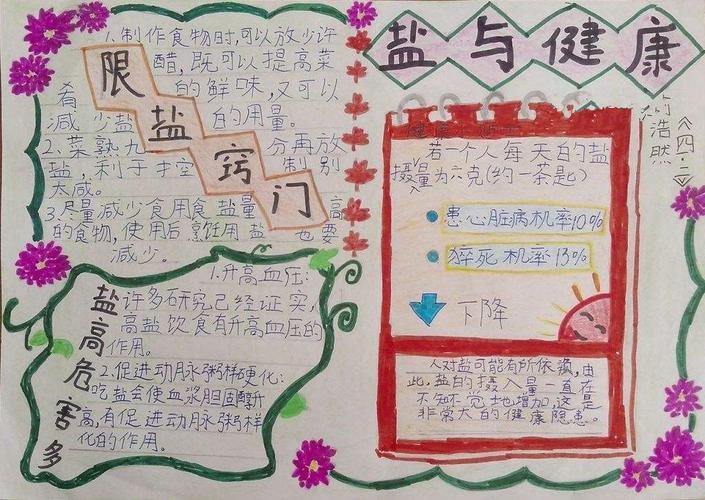 盐与健康
浩然
<四·二>
限盐窍门
1.制作食物时,可以放少许
醋,既可以提高菜
肴的鲜味,又可以
减少盐的用量。
2.菜熟九分再放
盐,利于控制别
太咸。
3.尽量减少食用食盐量高
的食物,使用后烹饪用盐也要
减少。
盐高危害多
1.升高血压:
许多研究已经证实,
高盐饮食有升高血压的
作用。
2.促进动脉粥样硬化:
吃盐会使血浆胆固醇升
高,有促进动脉粥样
化的作用。
若一个人每天的盐
摄入量为六克(约一茶匙)
患心脏病机率10%
猝死机率13%
下降
人对盐可能有所依赖,由
此,盐的摄入量一直在
不知不觉地增加,这是
非常大的健康隐患。